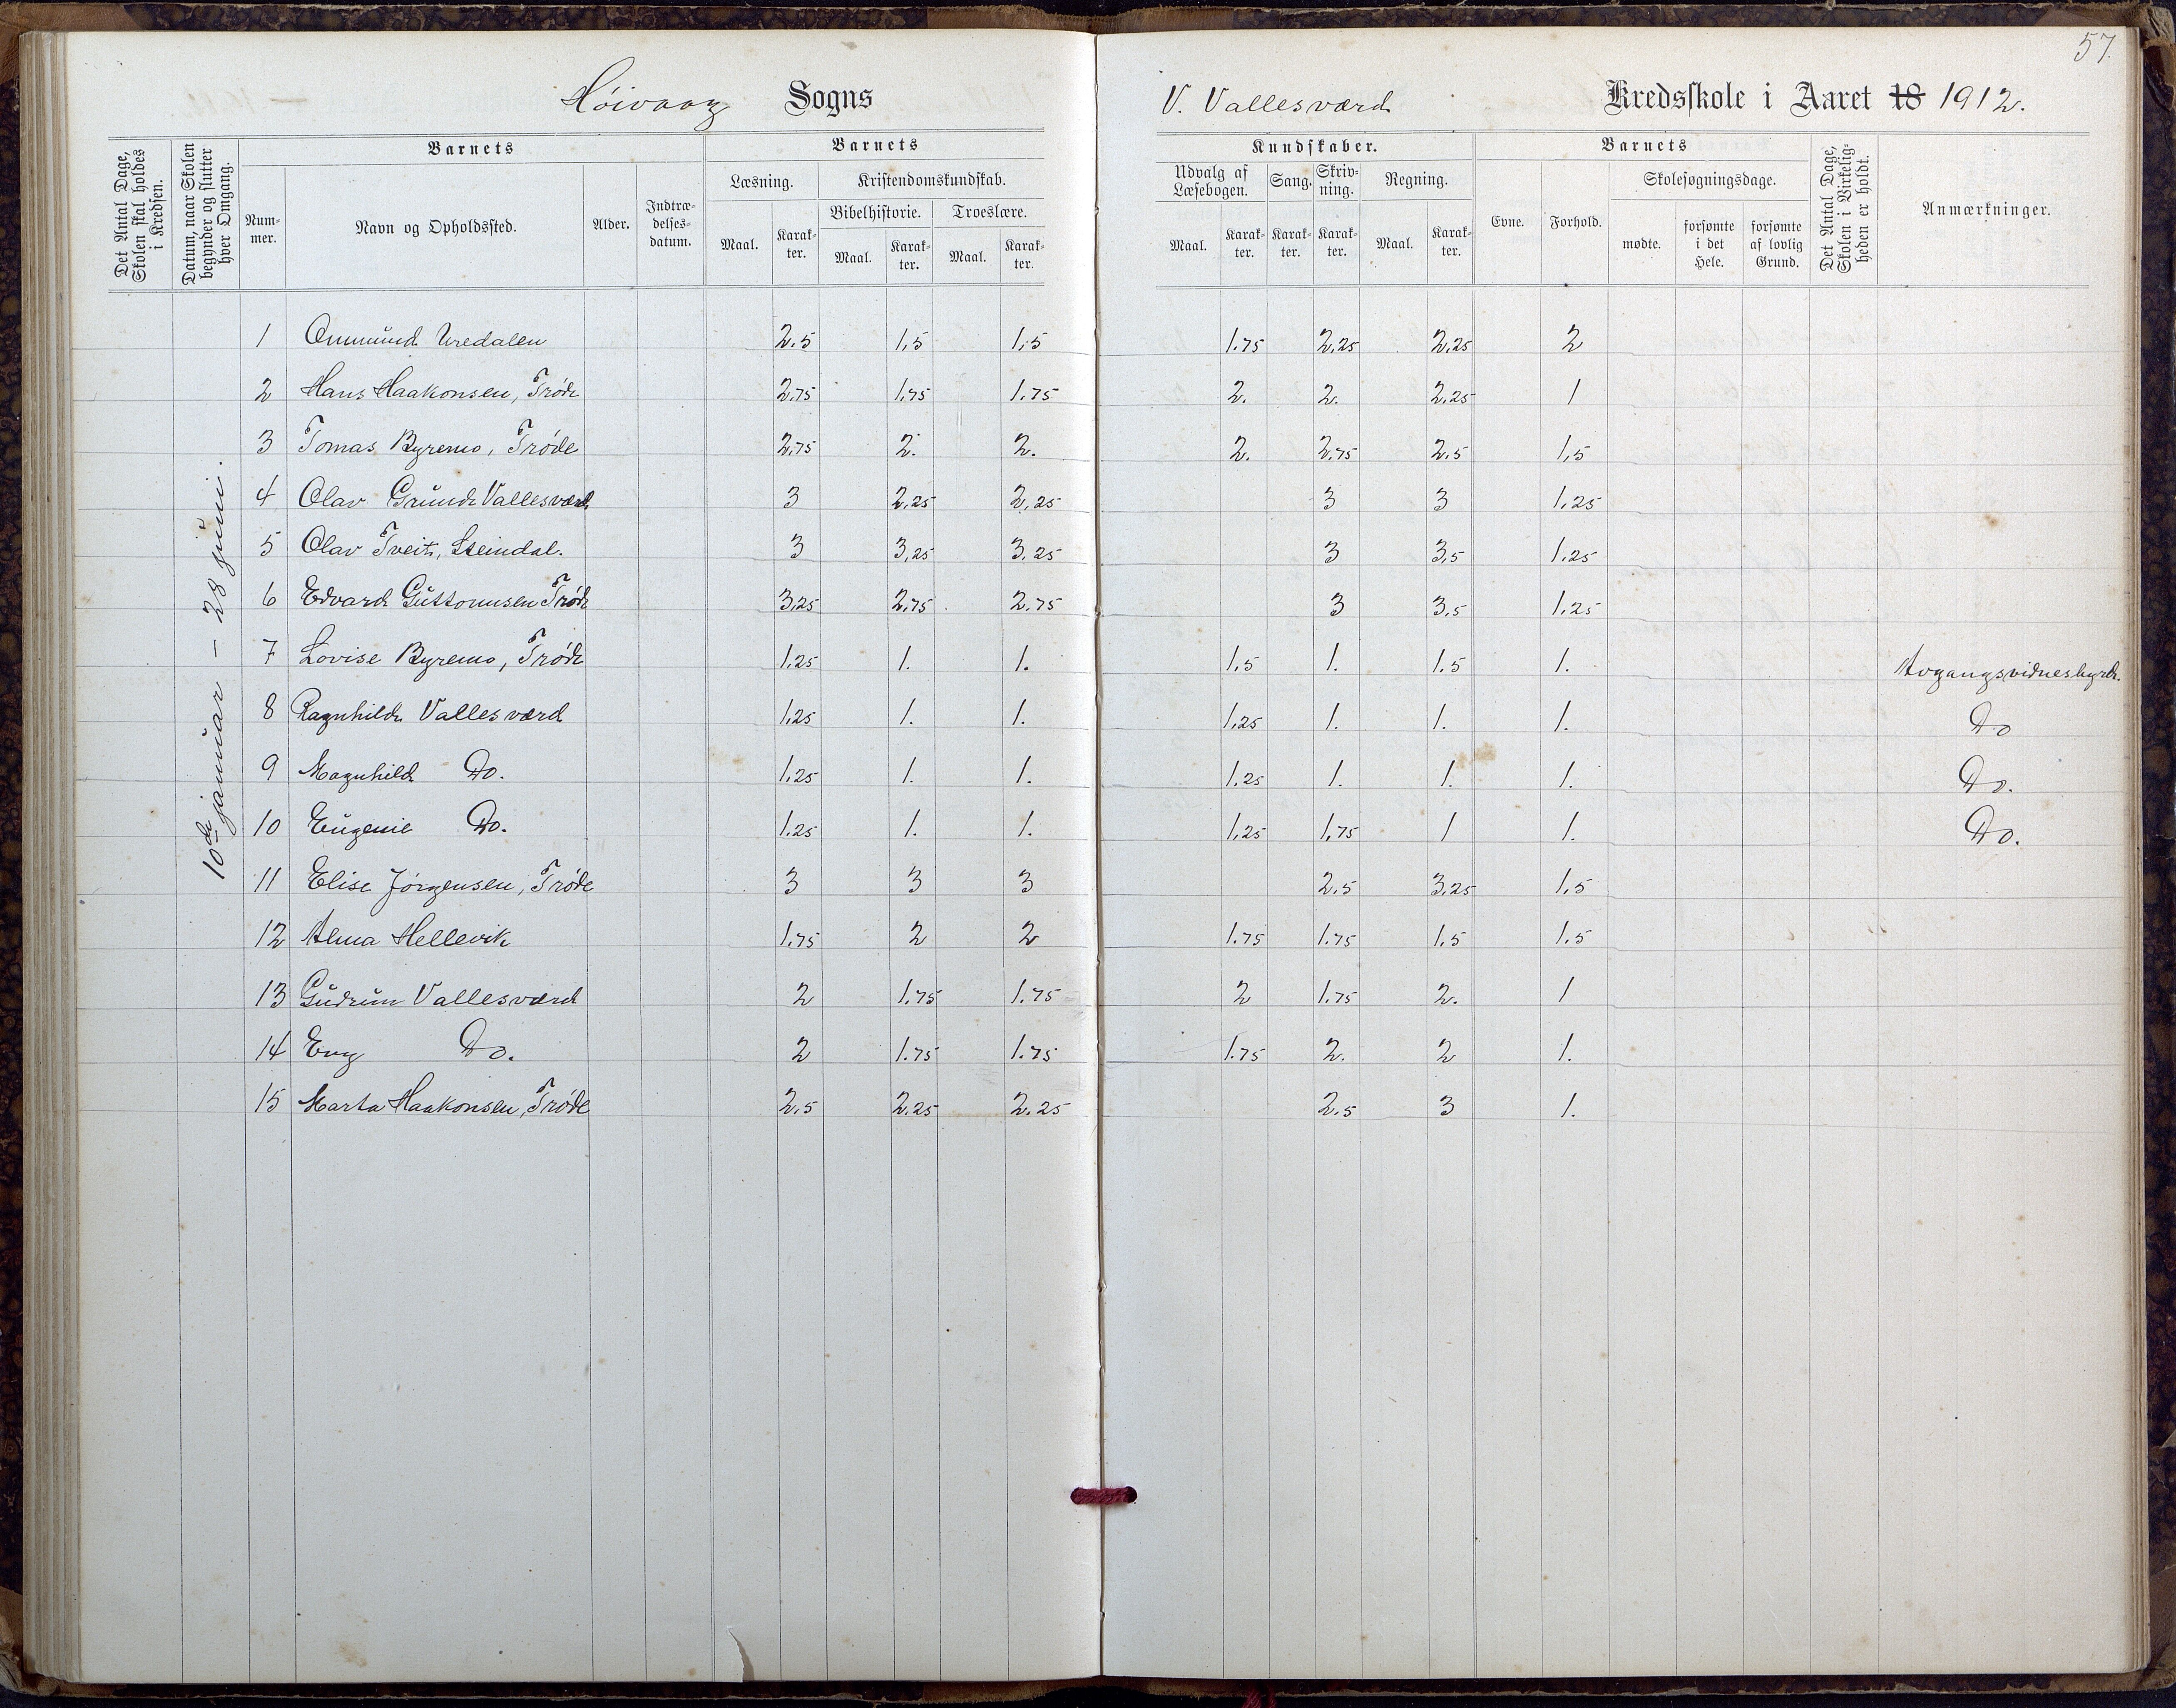 57.
Høivaag Sogns
V. Vallesværd Kredsskole i Aaret 18 1912.
Det Antal Dage, Skolen skal holdes i Kredsen.
Datum, naar Skolen begynder og slutter hver Omgang.
Barnets
Barnets
Kundskaber.
Barnets
Det Antal Dage, Skolen i Virkeligheden er holdt.
Anmærkninger.
Nummer.
Navn og Opholdssted.
Alder.
Indtrædelsesdatum.
Læsning.
Kristendomskundskab.
Bibelhistorie.
Troeslære.
Maal. Karakter. Maal. Karakter. Maal. Karakter.
Udvalg af Læsebogen.
Sang.
Skrivning.
Regning.
Maal. Karakter. Karakter. Karakter. Maal. Karakter.
Evne.
Forhold.
Skolesøgningsdage.
mødte.
forsømte i det Hele.
forsømte af lovlig Grund.
10de januar - 28 juni.
1 Ommund Uredalen 2.5 1,5 1,5 1.75 2,25 2,25 2
2 Hans Haakonsen, Trøde 2,75 1,75 1.75 2. 2. 2,25 1
3 Tomas Byremo, Trøde 2,75 2. 2. 2. 2,75 2.5 1,5
4 Olav Grundt Vallesværd 3 2,25 2,25 3 3 1,25
5 Olav Tveit, Steindal. 3 3,25 3,25 3 3,5 1.25
6 Edvard Guttormsen Trøde 3,25 2,75 2.75 3 3,5 1.25
7 Lovise Byremo, Trøde 1,25 1. 1. 1,5 1. 1.5 1. Avgangsvidnesbyrd.
8 Ragnhild Vallesværd 1,25 1. 1. 1,25 1. 1. 1. Do
9 Magnhild Do. 1,25 1. 1. 1.25 1. 1. 1. Do.
10 Eugenie Do. 1.25 1. 1. 1,25 1,75 1 1. Do.
11 Elise Jørgensen, Trøde 3 3 3 2.5 3,25 1,5
12 Alma Hellevik 1,75 2 2 1.75 1.75 1.5 1.5
13 Gudrun Vallesværd 2 1.75 1.75 2 1.75 2. 1
14 Eng Do. 2 1.75 1.75 1.75 2. 2 1.
15 Marta Haakonsen, Trøde 2,5 2,25 2.25 2.5 3 1.